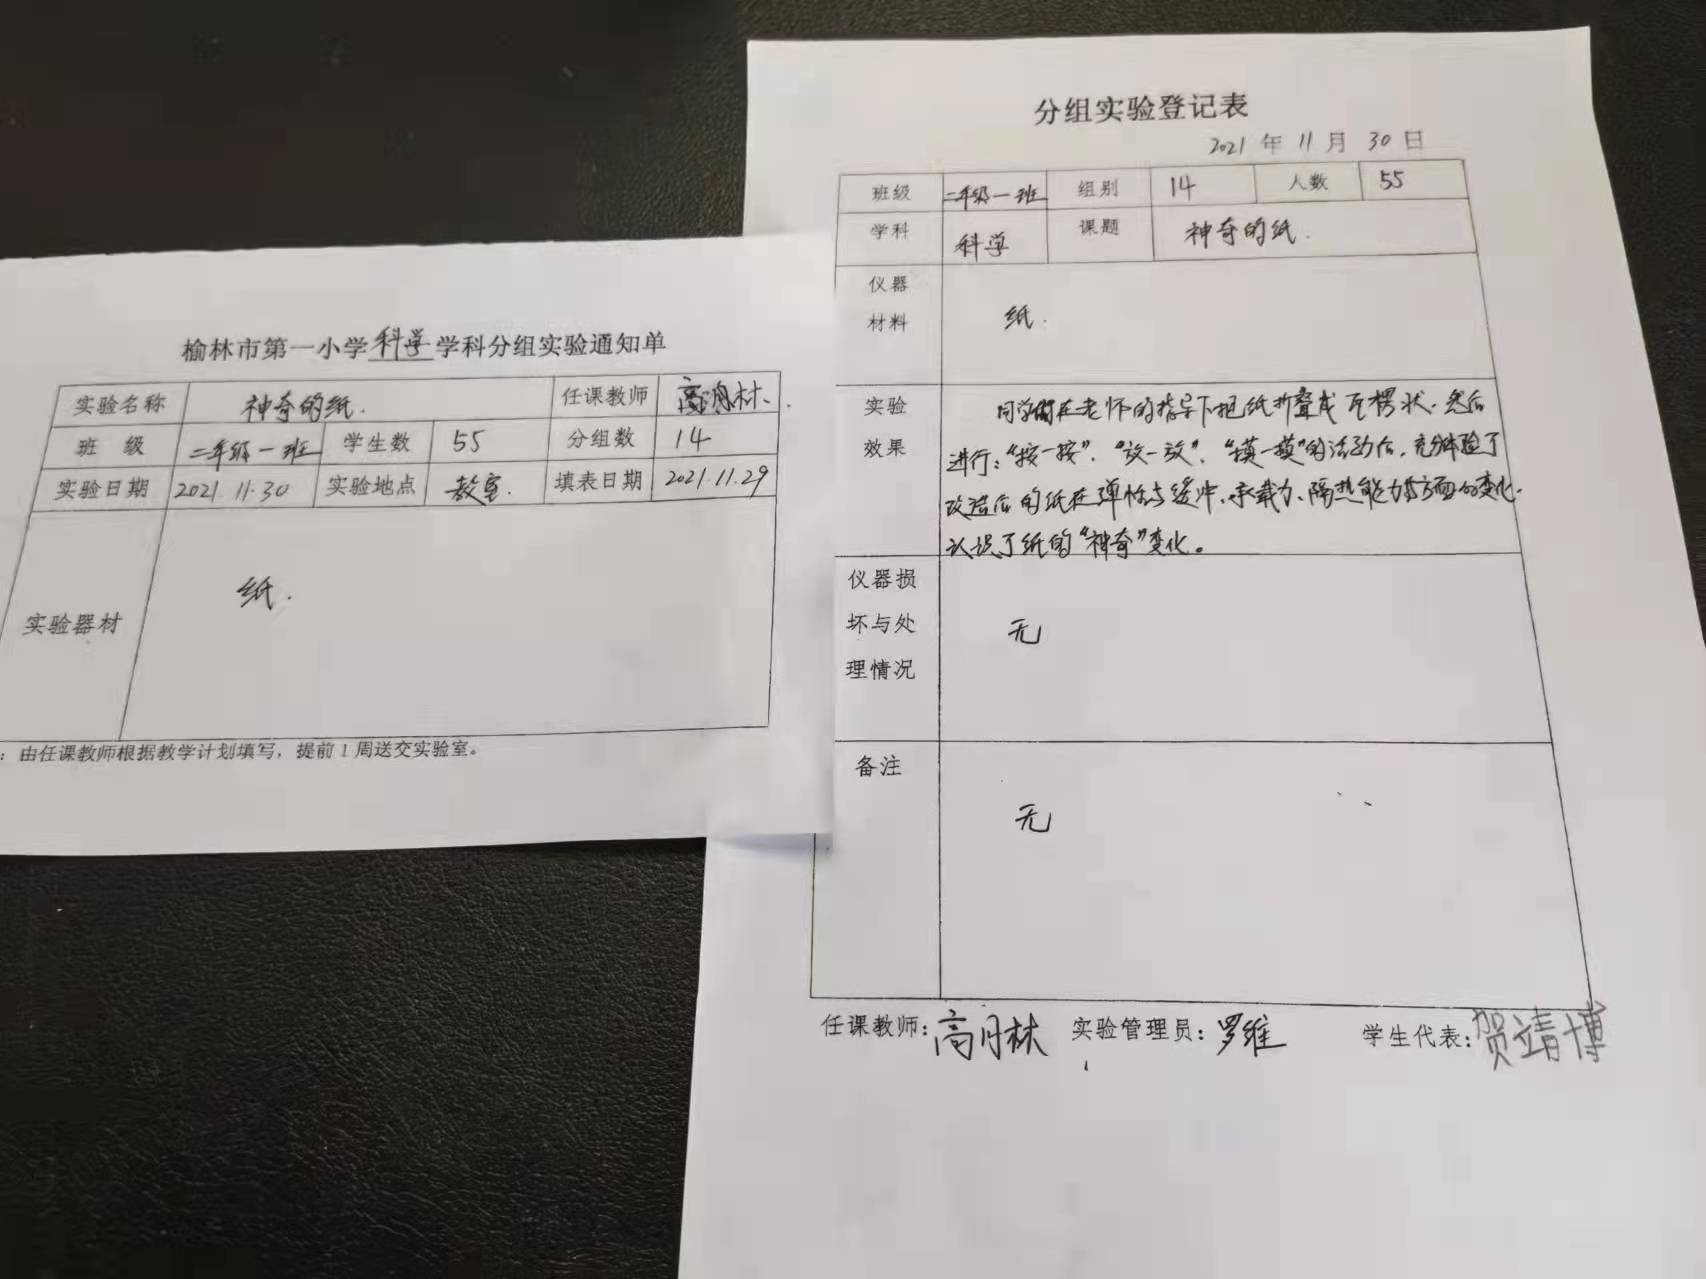 榆林市第一小学科学学科分组实验通知单
实验名称 神奇的纸. 任课教师 高月林.
班 级 二年级一班 学生数 55 分组数 14
实验日期 2021.11.30 实验地点 教室. 填表日期 2021.11.29
实验器材 纸.
：由任课教师根据教学计划填写，提前1周送交实验室。
分组实验登记表
2021 年 11 月 30 日
班级 二年级一班 组别 14 人数 55
学科 科学 课题 神奇的纸.
仪器
材料
纸.
实验
效果
同学们在老师的指导下把纸折叠成瓦楞状.然后
进行:“按一按”、“放一放”、“摸一摸”的活动后,充分体验了
改造后的纸在弹性与缓冲、承载力、隔热能力等方面的变化.
认识了纸的“神奇”变化。
仪器损
坏与处
理情况
无
备注
无
任课教师:高月林 实验管理员:罗维 学生代表:贺靖博